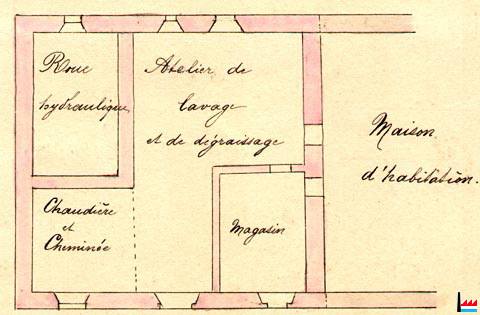 Roue
hydraulique
Atelier de
lavage
et de dégraissage
Maison
d'habitation.
Chaudière
et
Cheminée
Magasin